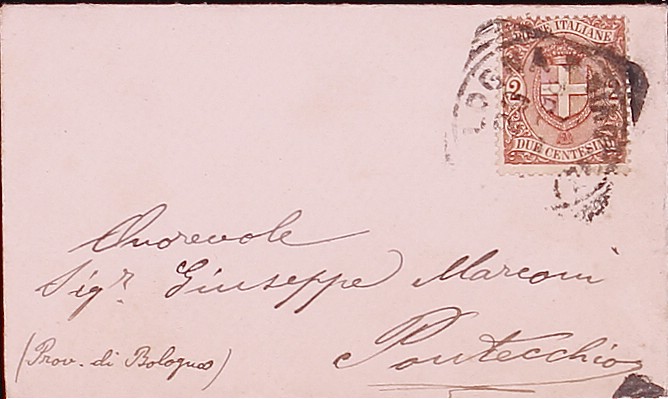 POSTE ITALIANE
2 2
DUE CENTESIMI
Onorevole
Sigr. Giuseppe Marconi
Pontecchio
(Prov. di Bologna)